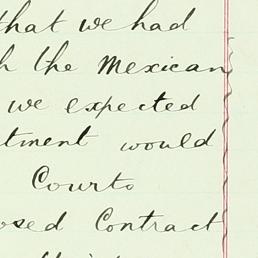 that we had
h the Mexican
we expected
tment would
Courts
osed Contract